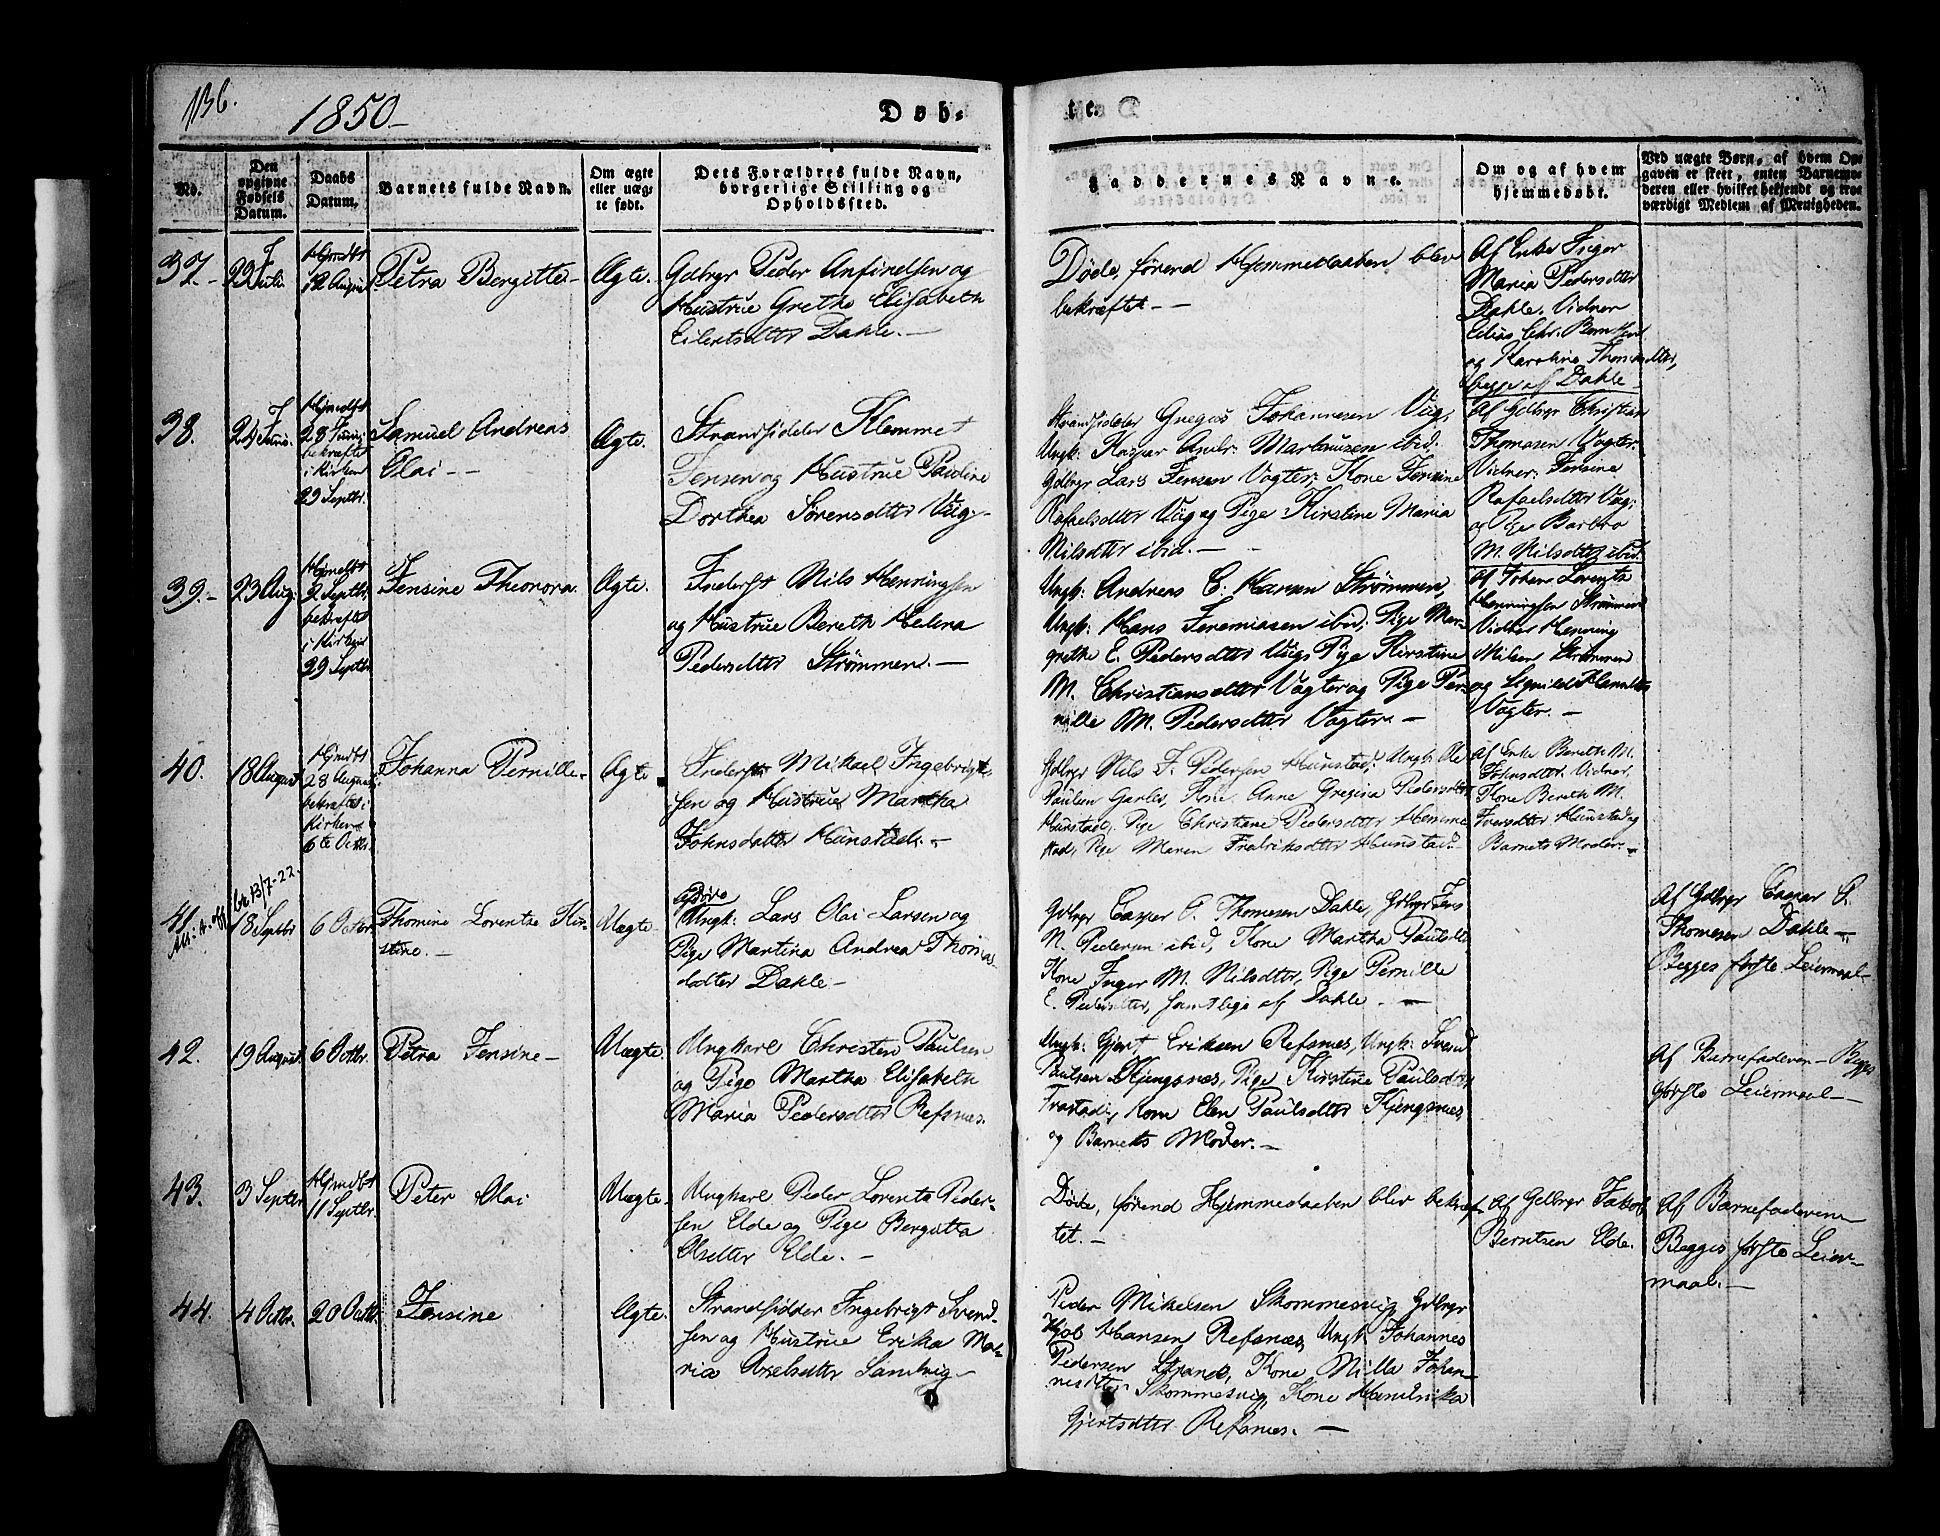 136.
1850-
Døb-
te.
No.
Den opgivne Fødsels Datum.
Daabs Datum.
Barnets fulde Navn.
Om ægte eller uægte født.
Dets Forældres fulde Navn, borgerlige Stilling og Opholdssted.
Faddernes Navne.
Om og af hvem hjemmedøbt.
Ved uægte Børn, af hvem Opgaven er skeet, enten Barnemoderen eller hvilket bekjendt og troeværdigt Medlem af Menigheden.
37.-
22 Juli
Hjmdbt
12 August
Petra Bergitte-
Ægte.
Gdbrgr Peder Anfindsen og
Hustrue Grethe Elisabeth
Eilertsdtter Dahle. -
Døde, førend Hjemmedaaben blev
bekræftet - -
Af Enke Inger
Maria Pedersdtter
Dahle. Vidner
Elias Chr. Berntsen
og Karoline Thomasdtter,
begge af Dahle -
38.
24 Juni.
Hjmdbt
28 Juni
bekræftet
i Kirken
29 Septbr.
Samuel Andreas
Olai - -
Ægte.
Strandsidder Klemmet
Jensen og Hustrue Pauline
Dorthea Sørensdtter Vug.-
Strandsidder Gregus Johannesen Vug,
Ungk: Kaspar Andr: Marthusen ibid:
Gdbrgr Lars Jensen Vagter; Kone Jensine
Rafaelsdtter Vug og Pige Kirstine Maria
Nilsdtter ibid. - -
Af Gdbrgr Christian
Thomasen Vagter.
Vidner: Jensine
Rafaelsdtter Vug;
og Pige Barbro
M. Nilsdtter ibid.
39.-
23 Aug:
Hjmdbt
2 Septbr.
bekræftet
i Kirken
29 Septbr
Jensine Theonora.
Ægte.
Inderst Nils Henningsen
og Hustrue Bereth Helena
Pedersdtter Strømmen. -
Ungk: Andreas C. Hansen Strømmen,
Ungk: Hans Jeremiasen ibid; Pige Mar-
grethe E. Pedersdtter Vug, Pige Kirstine
M. Christiansdtter Vagter og Pige Per-
nille M. Pedersdtter Vagter. -
Af Johan Lorents
Henningsen Strømmen
Vidner Henning
Nilsen Strømmen
og
Vagter. -
40.
18 August
Hjmdbt
28 August
bekræftet i
Kirken
6te Octbr.
Johanna Pernille-
Ægte
Inderst Mikael Ingebrigt-
sen og Hustrue Martha
Johnsdatter Hunstad. -
Gdbrgr Nils J. Pedersen Hunstad, Ungk: Ole
Paulsen, Kone Anne Gregina Pedersdtter
Hunstad, Pige Christiane Pedersdtter Hemme
stad, Pige Maren Fredriksdtter Hunstad. -
Af Enke Bereth M.
Johnsdtter. Vidner,
Kone Bereth M.
Iversdtter Hunstad og
Barnets Moder. -
41.
br. 13/7-22.
18 Septbr
6 Octbr.
Thomine Lorentze Kir-
stine. -
Uægte-
Ungk: Lars Olai Larsen og
Pige Martina Andrea Thomas
datter Dahle -
Gdbrgr Casper P. Thomesen Dahle, Gdbrgr Jens
N. Pedersen ibid, Kone Martha Paulsdtter
Kone Inger M. Nilsdtter, Pige Pernille
E. Pedersdtter, samtlige af Dahle. -
Af Gdbrgr Casper P.
Thomesen Dahle -
Begges første Leiermaal-
42.
19 August
6 Octbr.
Petra Jensine -
Uægte.
Ungkarl Christen Paulsen
og Pige Martha Elisabeth
Maria Pedersdtter Refsnes.
Ungk: Gjert Eriksen Refsnes, Ungk: Svend
Paulsen Kjengsnes, Pige Kirstine Paulsdtter
Trastad, Kone Elen Paulsdtter Kjengsnes
og Barnets Moder. -
Af Barnefaderen - Begges
første Leiermaal -
43.
3 Septbr
Hjmdbt
11 Septbr.
Peter Olai
Uægte-
Ungkarl Peder Lorents Peder-
sen Elde og Pige Bergitta
Olsdtter Elde. -
Døde, førend Hjemmedaaben blev bekræf-
tet. -
Af Gdbrgr Jakob
Berntsen Elde.
Af Barnefaderen
Begges første Leier-
maal. -
44.
4 Octbr.
20 Octbr.
Jensine
Ægte.
Strandsidder Ingebrigt Svend-
sen og Hustrue Erika Ma-
ria Axelsdtter Sandvig -
Peder Mikelsen Skommesvig, Gdbrgr
Hansen Refsnes, Ungk: Johannes
Pedersen Strand, Kone Milla Johan-
nesdtter Skommesvig, Kone Hendrika
Gjertsdtter Refsnes. -